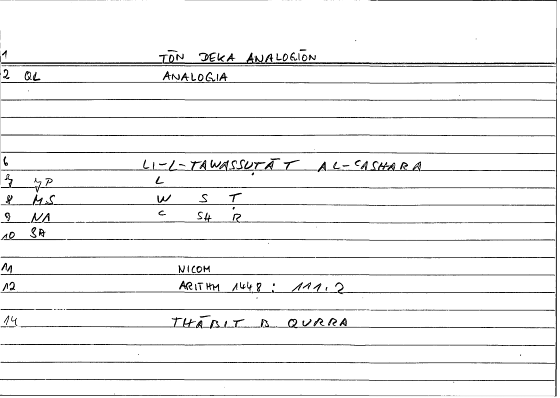 1 TŌN DEKA ANALOGIŌN
2 QL ANALOGIA
6 LI-L-TAWASSUṬĀT AL-ᶜASHARA
7 JP L
8 MS W S Ṭ
9 NA ᶜ SH R
10 SA
11 NICOM
12 ARITHM 1448 : 111.2
14 THĀBIT B QURRA